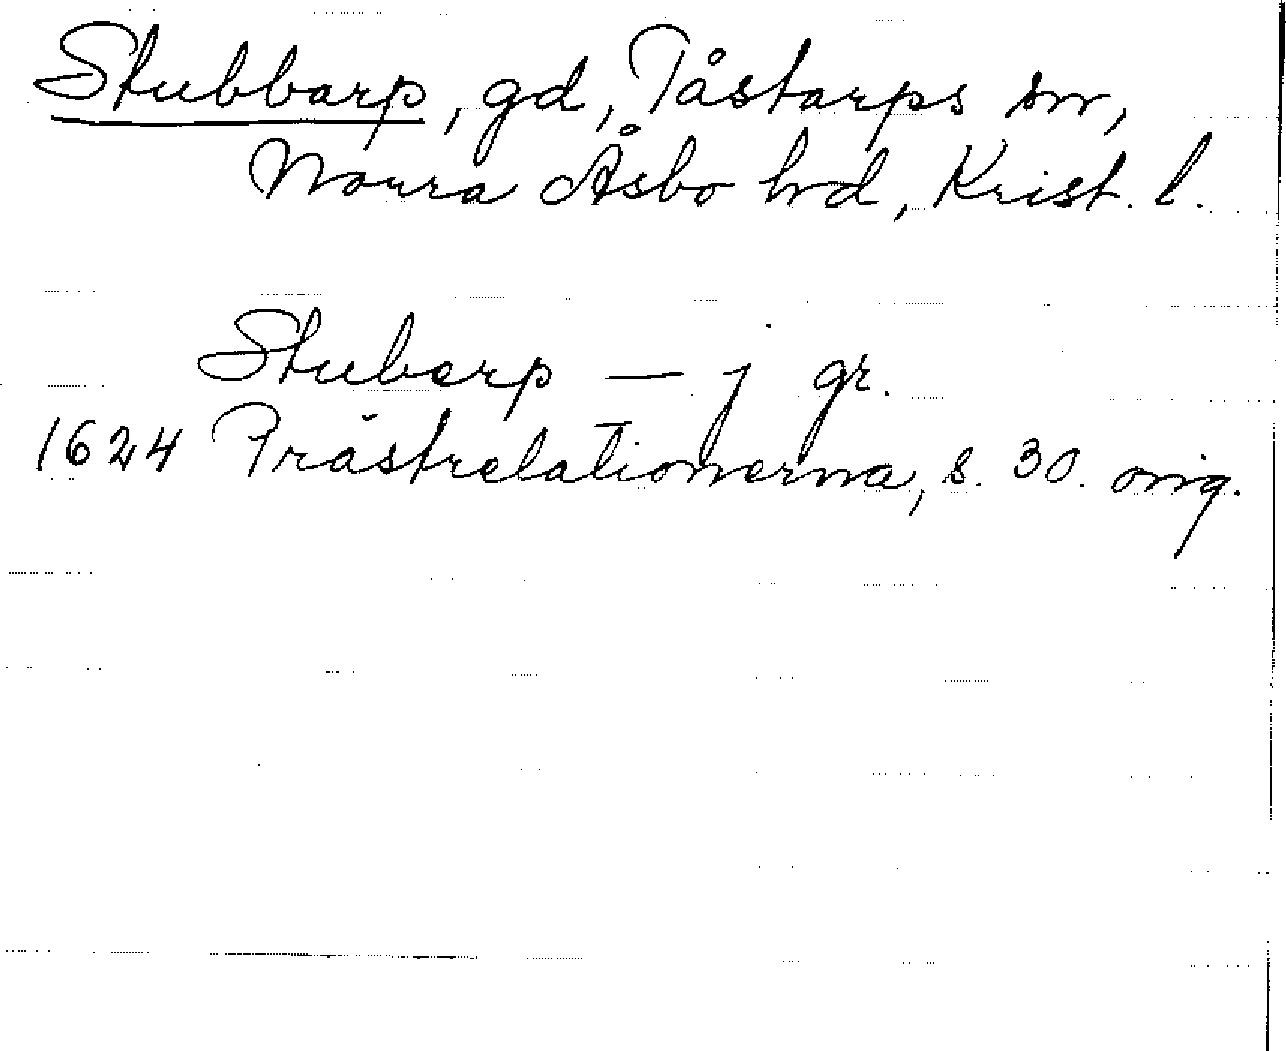 Stubbarp, gd, Tåstarps sn,
Norra Åsbo hrd, Krist. l.
Stuberp — j gr.
1624 Prästrelationerna, s. 30. orig.